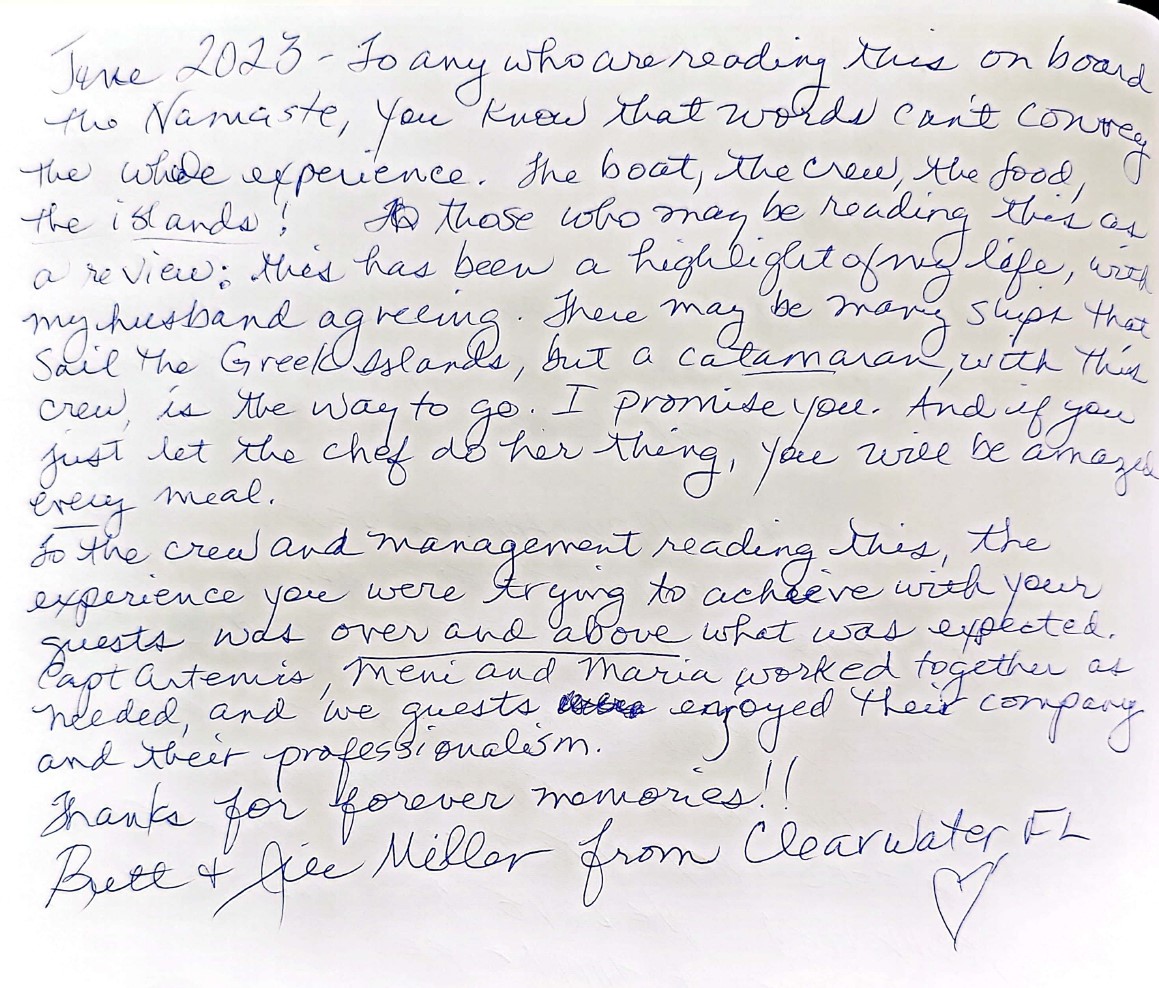 June 2023 - To any who are reading this on board
the Namaste, you know that words can't convey
the whole experience. The boat, the crew, the food,
the islands! To those who may be reading this as
a review: this has been a highlight of my life, with
my husband agreeing. There may be many ships that
Sail the Greek Islands, but a catamaran, with this
crew, is the way to go. I promise you. And if you
just let the chef do her thing, you will be amazed
every meal.
To the crew and management reading this, the
experience you were trying to achieve with your
guests was over and above what was expected.
Capt Artemis, Meni and Maria worked together as
needed, and we guests enjoyed their company
and their professionalism.
Thanks for forever memories!!
Brett + Jill Miller from Clearwater FL